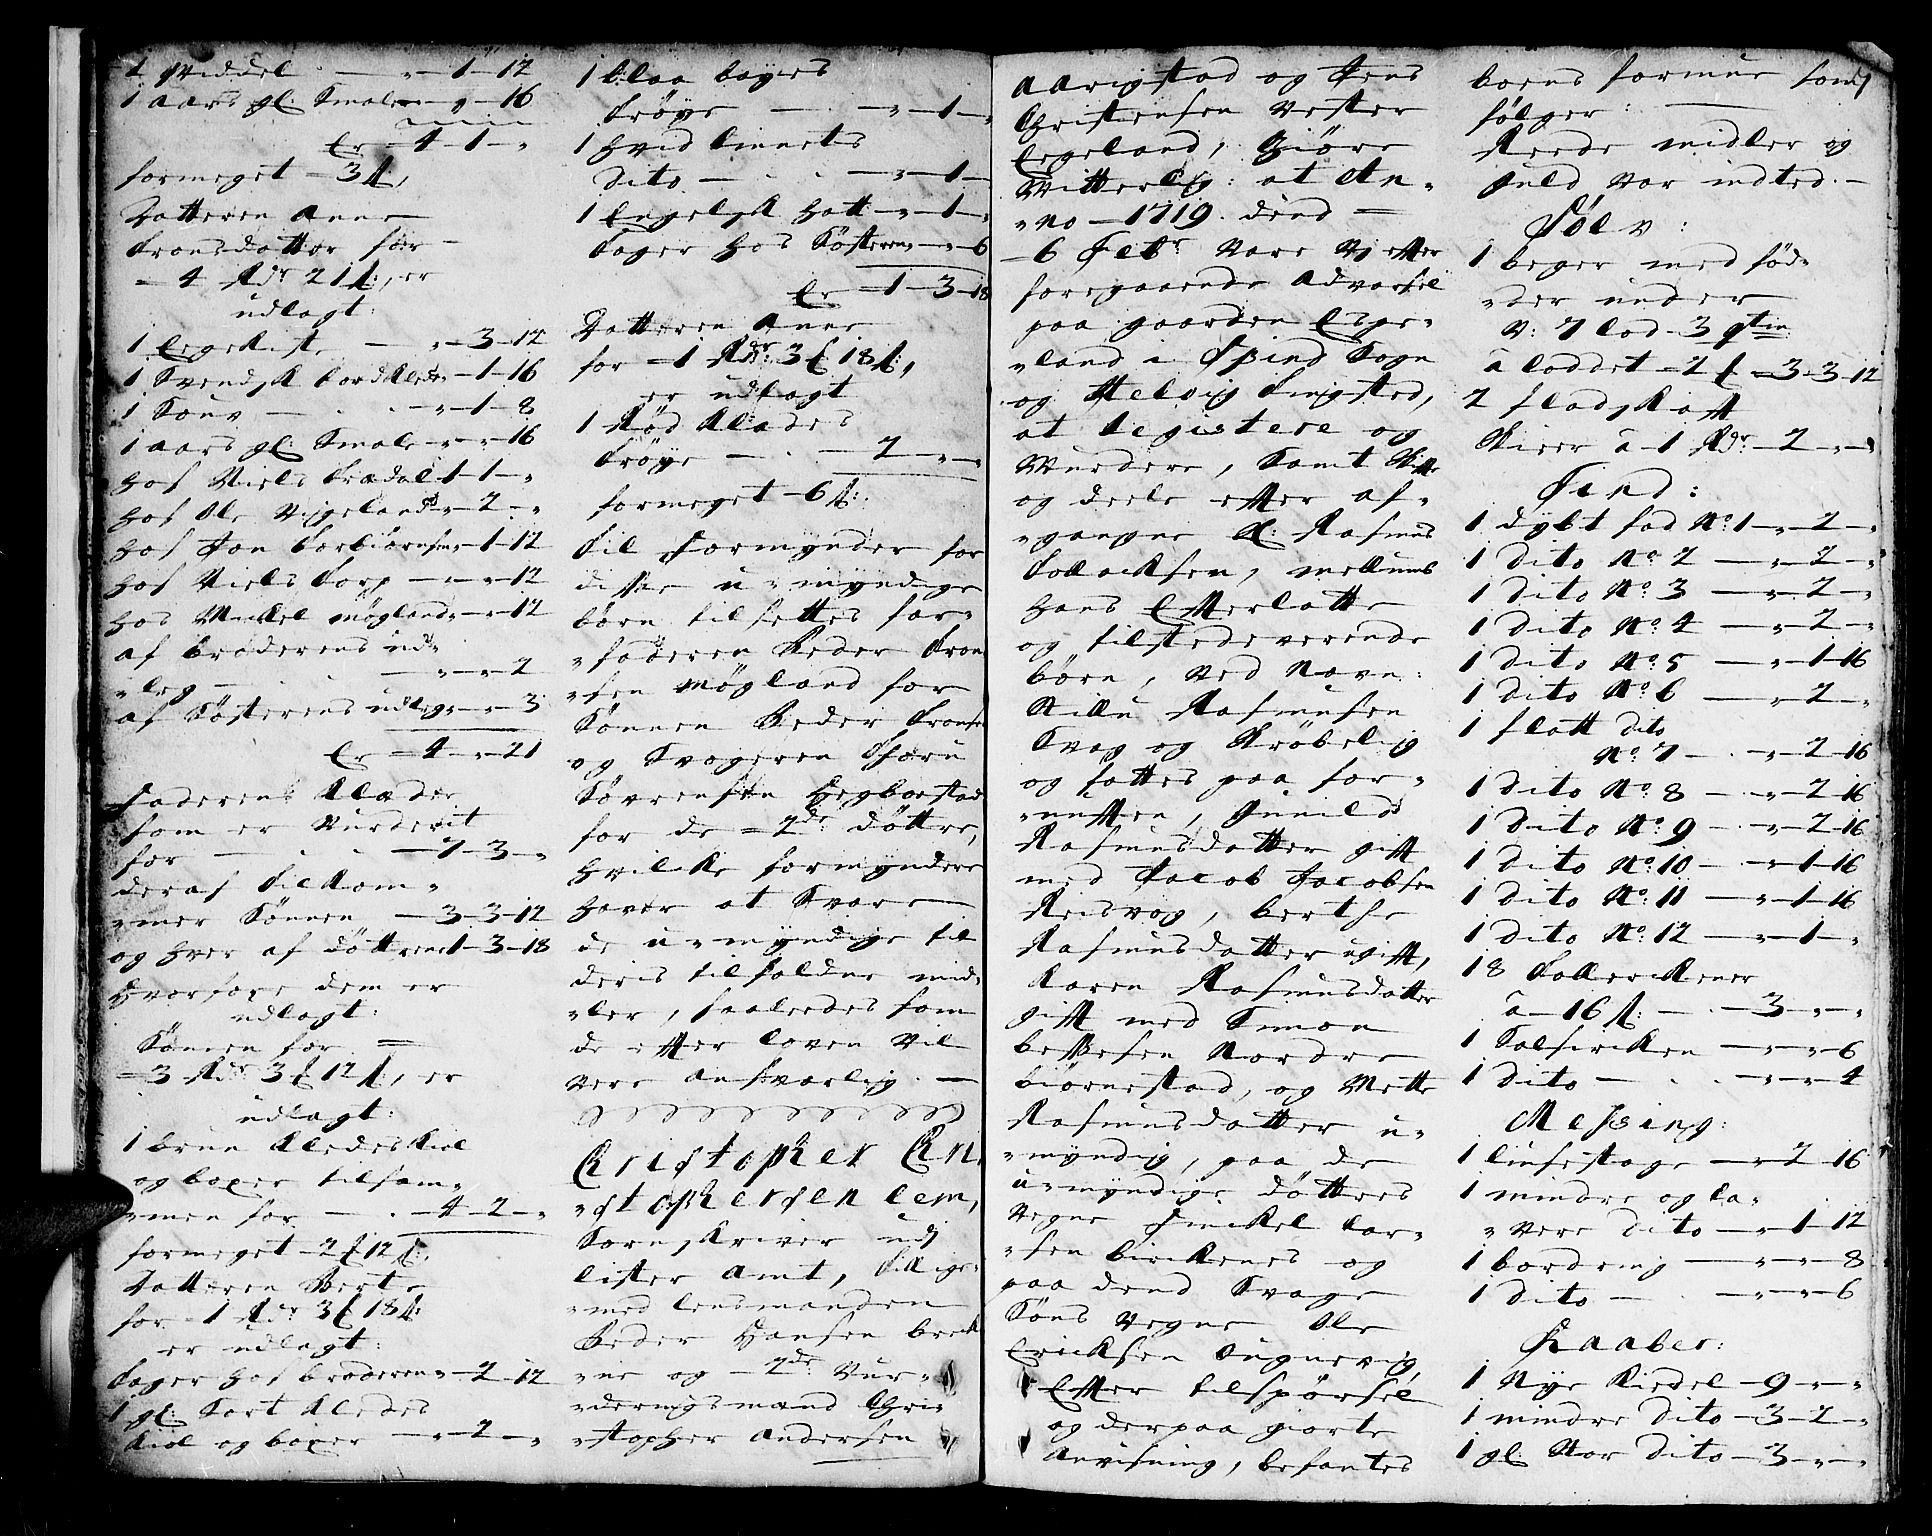 1 Middel — „ - 1 - 12
1 aars gl: Smale - „ - „ - 16
Er - 4 - 1 - „
formeget - 3 ß,
Datteren Anne
Tronsdatter for -
- 4 Rdr 21 ß:, er
udlagt:
1 Egekiste — „ - 3 - 12
1 Svensk bordklede - „ - 1 - 16
1 Souv — „ - 1 - 8
1 aars gl: Smale - „ - „ - 16
hos Niels Tredal 1 - 1 - „
hos Ole Vigeland - „ - 2 - „
hos Jon Torbiörnsen - „ - 1 - 12
hos Niels Torp - „ - „ - 12
hos Mickel Mögland - „ - „ - 12
af broderens ud„
„leg — „ - „ - 2
af Søsterens udleg - „ - „ - 3
Er - 4 - „ - 21
Faderens Klæder
som er Vurderit
for — 7 - 3 - „
deraf tilkom„
„mer Sönnen — 3 - 3 - 12
og hver af döttrene 1 - 3 - 18
Hvorfore dem er
udlagt:
Sönnen for —
- 3 Rdr 3 ₤ 12 ß, er
udlagt:
1 brun Kledeskiol
og boxer tilsam„
„men for — 4 - 2 - „
formeget - 2 ₤ 12 ß:,
Datteren Berte
for - 1 Rdr 3 ₤ 18 ß:
er udlagt:
Tager hos broderen - „ - 2 - 12
1 gl: Sort Kledes
Kiol og boxer — „ - 2 - „
1 blaa bayes
Tröye — „ - 1 - „
1 hvid linnets
dito — „ - 1 - „
1 Engelsk hatt - „ - 1 - „
Tager hos Søsteren - „ - „ - 6
Er - 1 - 3 - 18
Datteren Anne
for - 1 Rdr: 3 ₤ 18 ß:,
er udlagt
1 Rød Klædes
Tröye — 2 - „ - „
formeget - 6 ß:
Til Formynder for
disse u-myndige
börn tilsettes far„
„faderen Peder Tron
„sen Mögland for
Sönnen Peder Tronsen
og Svogeren Tieru
Sörensen Hegbostad
for de - 2de: döttre,
hvilke formyndere
haver at Svare
de u-myndige til
deris tilfaldne mid„
„ler, saaledes som
de efter loven vil
være ansvarlig. —
Christopher Chri„
„stophersen Lem,
Sorenskriver udj
Lister Amt, Tillige„
„med lensmanden
Peder Hansen breck
„ne og - 2de Vur„
„deringsmænd Chri„
„stopher Andersen
Aarigstad og Jens
Christensen Vester
Egeland, Giöre
Vitterlig: at An„
„no - 1719. dend —
- 6 Febr: vare vj efter
foregaaende Advarsel
paa gaarden Espe„
„land i Spind Sogn
og Helvig Tingsted,
at Registere og
Vurdere, samt Skifte
og deele efter af„
„gangne Sl: Rasmus
Tollacksen, mellum
hans Efterlatte
og tilstedeverende
börn, ved Navn:
Villu Rasmusen
Svag og Skröbelig
og fattes paa for„
„nuften, Gunild
Rasmusdatter gift
med Jacob Jacobsen
Reisvog, Berthe
Rasmusdatter ugift,
Karen Rasmusdatter
gift med Simon
bessesen Nordre
biörnestad, og Mette
Rasmusdatter u„
„myndig, paa de
u-myndige döttres
Vegne Finckel Lar„
„sen birckenes og
paa dend Svage
Söns Vegne Ole
Ericksen Augnevig,
Efter tilspörsel
og derpaa giorte
Anvisning, befantes
boens formue som
fölger: —
Reede midler og
Guld var intted. —
Sölv:
1 beger med föd„
„der under
v: 7 lod 3 qtin
à loddet - 2 ₤ - 3 - 3 - 12
2 fladskaft
Skeer à - 1 Rdr - 2 - „ - „
Tind:
1 dybt fad No: 1 - „ - 2 - „
1 dito No 2 — „ - 2 - „
1 dito No: 3 — „ - 2 - „
1 dito No: 4 — „ - 2 - „
1 dito No: 5 — „ - 1 - 16
1 dito No: 6 — „ - 2 - „
1 flatt dito
No: 7 — „ - 2 - 16
1 dito No: 8 — „ - 2 - 16
1 dito No: 9 — „ - 2 - 16
1 dito No: 10 — „ - 1 - 16
1 dito No: 11 — „ - 1 - 16
1 dito No: 12 — „ - 1 - „
18 Tallerkener
à - 16 ß: — 3 - „ - „
1 Saltsirken — „ - „ - 6
1 dito — „ - „ - 4
Messing:
1 liusestage — „ - 2 - 16
1 mindre og la„
„vere dito — „ - 1 - 12
1 bordring — „ - „ - 8
1 dito — „ - „ - 6
Kaaber:
1 Nye Kiedel - 9 - „ - „
1 mindre dito - 3 - 2 - „
1 gl: Stor dito - 3 - „ - „